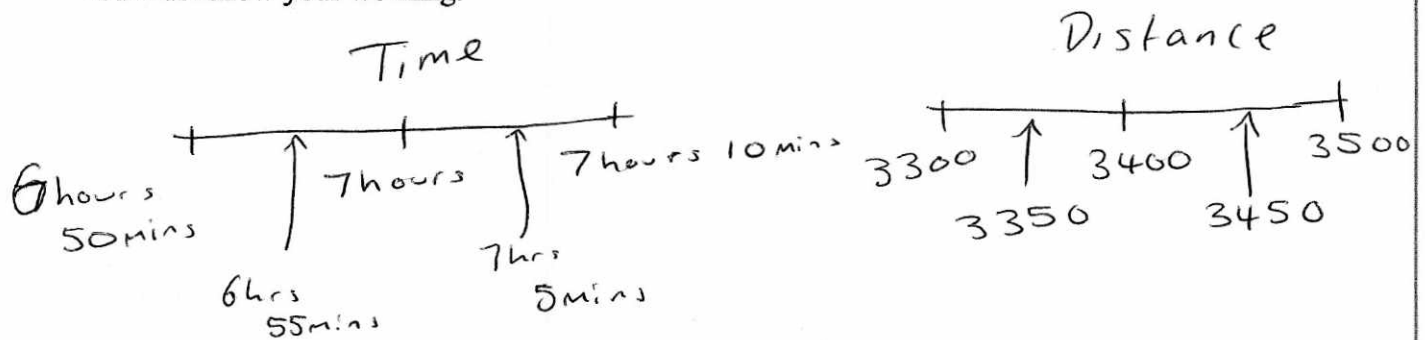 Time
Distance
6 hours
50 mins
7 hours
7 hours 10 mins
6 hrs
55 mins
7 hrs
5 mins
3300
3400
3500
3350
3450